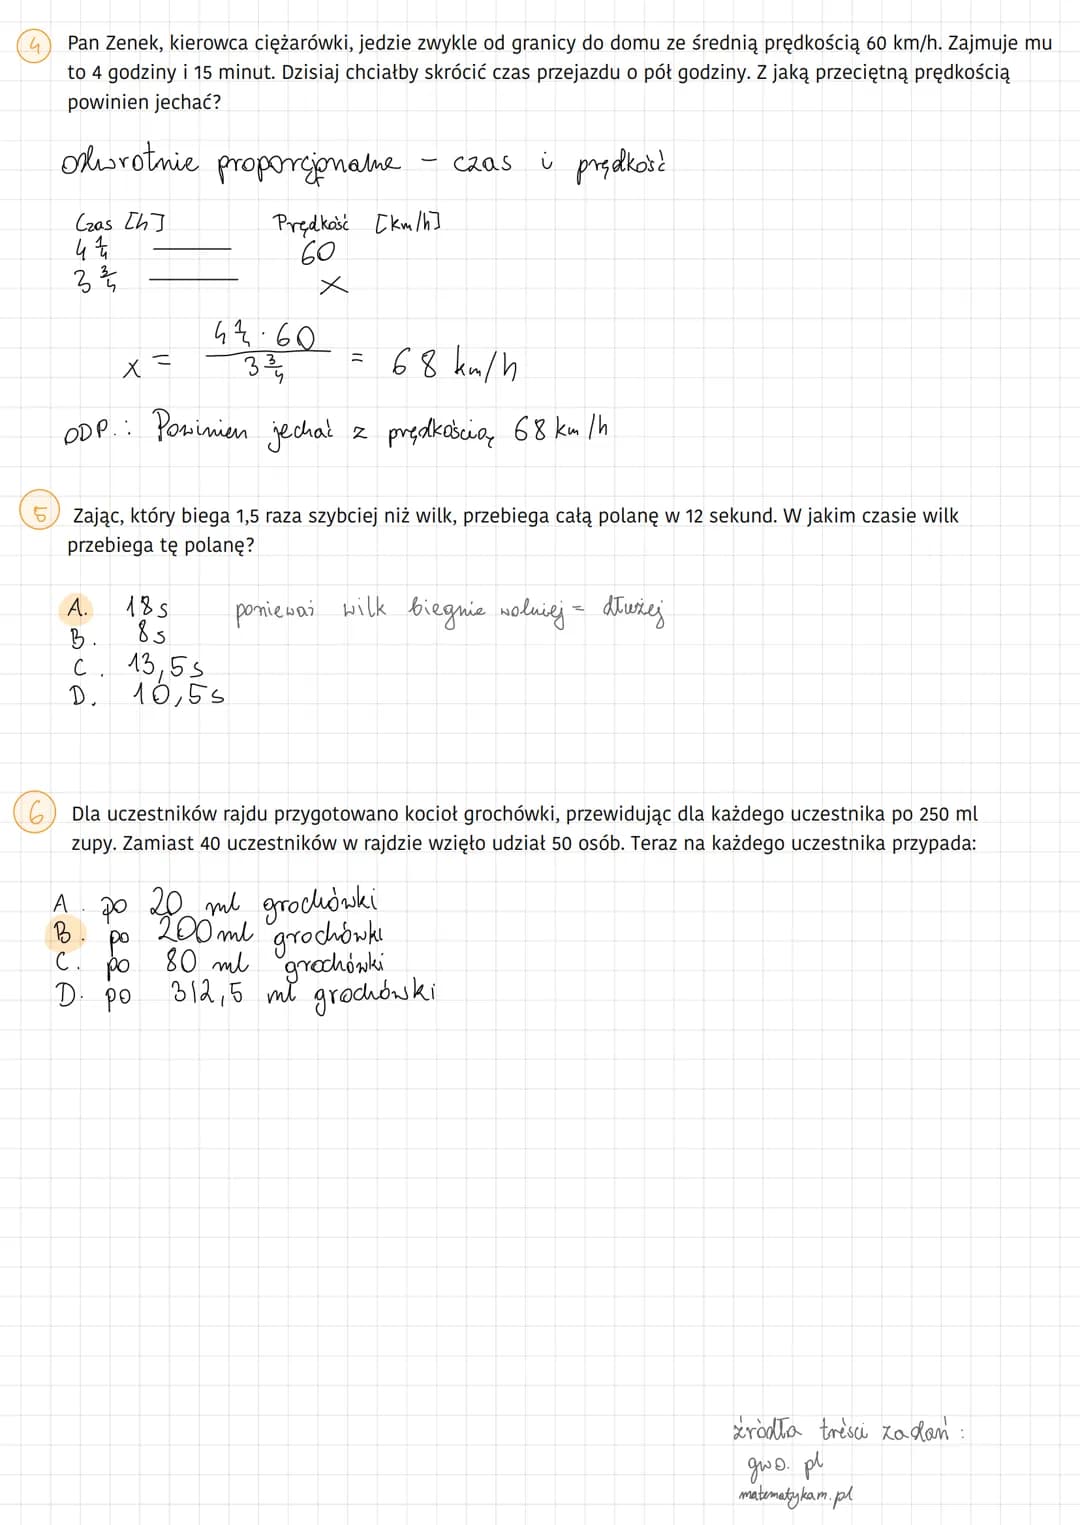 4 Pan Zenek, kierowca ciężarówki, jedzie zwykle od granicy do domu ze średnią prędkością 60 km/h. Zajmuje mu
to 4 godziny i 15 minut. Dzisiaj chciałby skrócić czas przejazdu o pół godziny. Z jaką przeciętną prędkością
powinien jechać?
odwrotnie proporcjonalne - czas i prędkość
Czas [h] Prędkość [km/h]
4 1/4 60
3 3/4 x
x = (4 1/4 · 60) / (3 3/4) = 68 km/h
ODP.: Powinien jechać z prędkością 68 km/h
5 Zając, który biega 1,5 raza szybciej niż wilk, przebiega całą polanę w 12 sekund. W jakim czasie wilk
przebiega tę polanę?
A. 18s ponieważ wilk biegnie wolniej = dłużej
B. 8s
C. 13,5s
D. 10,5s
6 Dla uczestników rajdu przygotowano kocioł grochówki, przewidując dla każdego uczestnika po 250 ml
zupy. Zamiast 40 uczestników w rajdzie wzięło udział 50 osób. Teraz na każdego uczestnika przypada:
A. po 20 ml grochówki
B. po 200 ml grochówki
C. po 80 ml grochówki
D. po 312,5 ml grochówski
źródła treści zadań:
gwo.pl
matematykam.pl